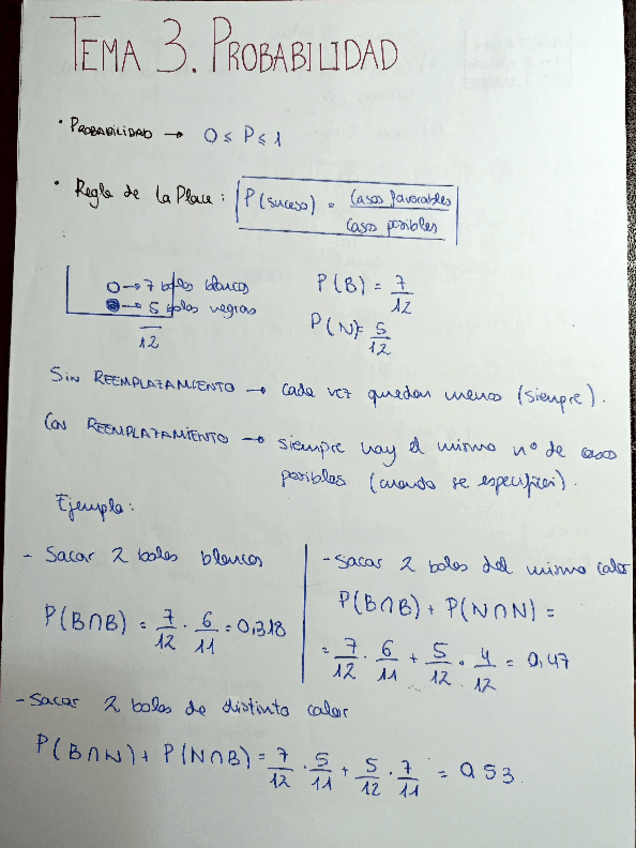 TEMA 3. PROBABILIDAD
· PROBABILIDAD → 0 ≤ P ≤ 1
· Regla de La Place: P(suceso) = casos favorables / casos posibles
O → 7 bolas blancas
● → 5 bolas negras
12
P(B) = 7/12
P(N) = 5/12
SIN REEMPLAZAMIENTO → cada vez quedan menos (siempre).
CON REEMPLAZAMIENTO → siempre hay el mismo nº de casos
posibles (cuando se especifica).
Ejemplo:
- Sacar 2 bolas blancas
P(B∩B) = 7/12 · 6/11 = 0,318
- Sacar 2 bolas del mismo color
P(B∩B) + P(N∩N) =
= 7/12 · 6/11 + 5/12 · 4/12 = 0,47
- Sacar 2 bolas de distinto color
P(B∩N) + P(N∩B) = 7/12 · 5/11 + 5/12 · 7/11 = 0,53.